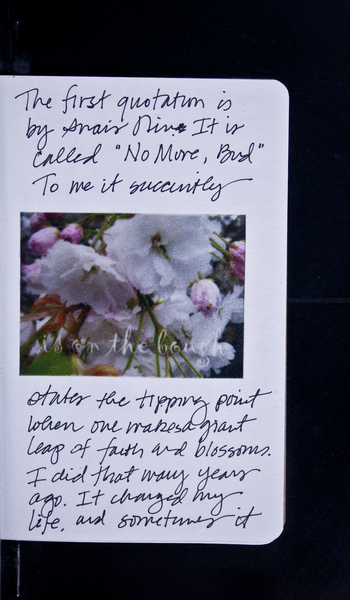 The first quotation is
by Anais Nin. It is
called "No More, Bud"
To me it succintly
is on the bough
states the tipping point
when one makes a giant
leap of faith and blossoms.
I did that many years
ago. It changed my
life, and sometimes it